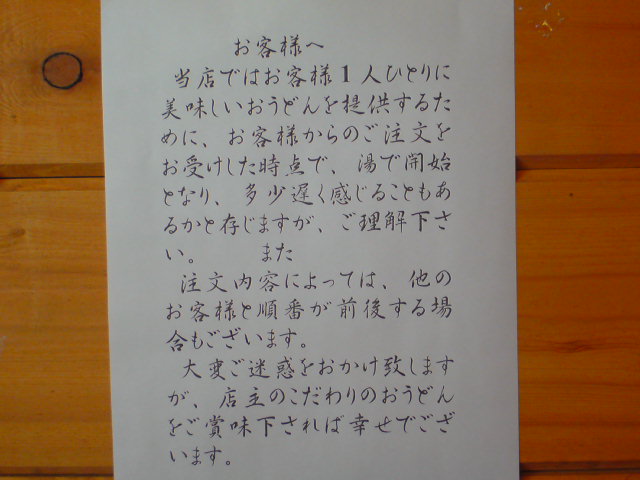 お客様へ
当店ではお客様1人ひとりに
美味しいおうどんを提供するた
めに、お客様からのご注文を
お受けした時点で、湯で開始
となり、多少遅く感じることもあ
るかと存じますが、ご理解下さ
い。 また
注文内容によっては、他の
お客様と順番が前後する場
合もございます。
大変ご迷惑をおかけ致します
が、店主のこだわりのおうどん
をご賞味下されば幸せでござ
います。